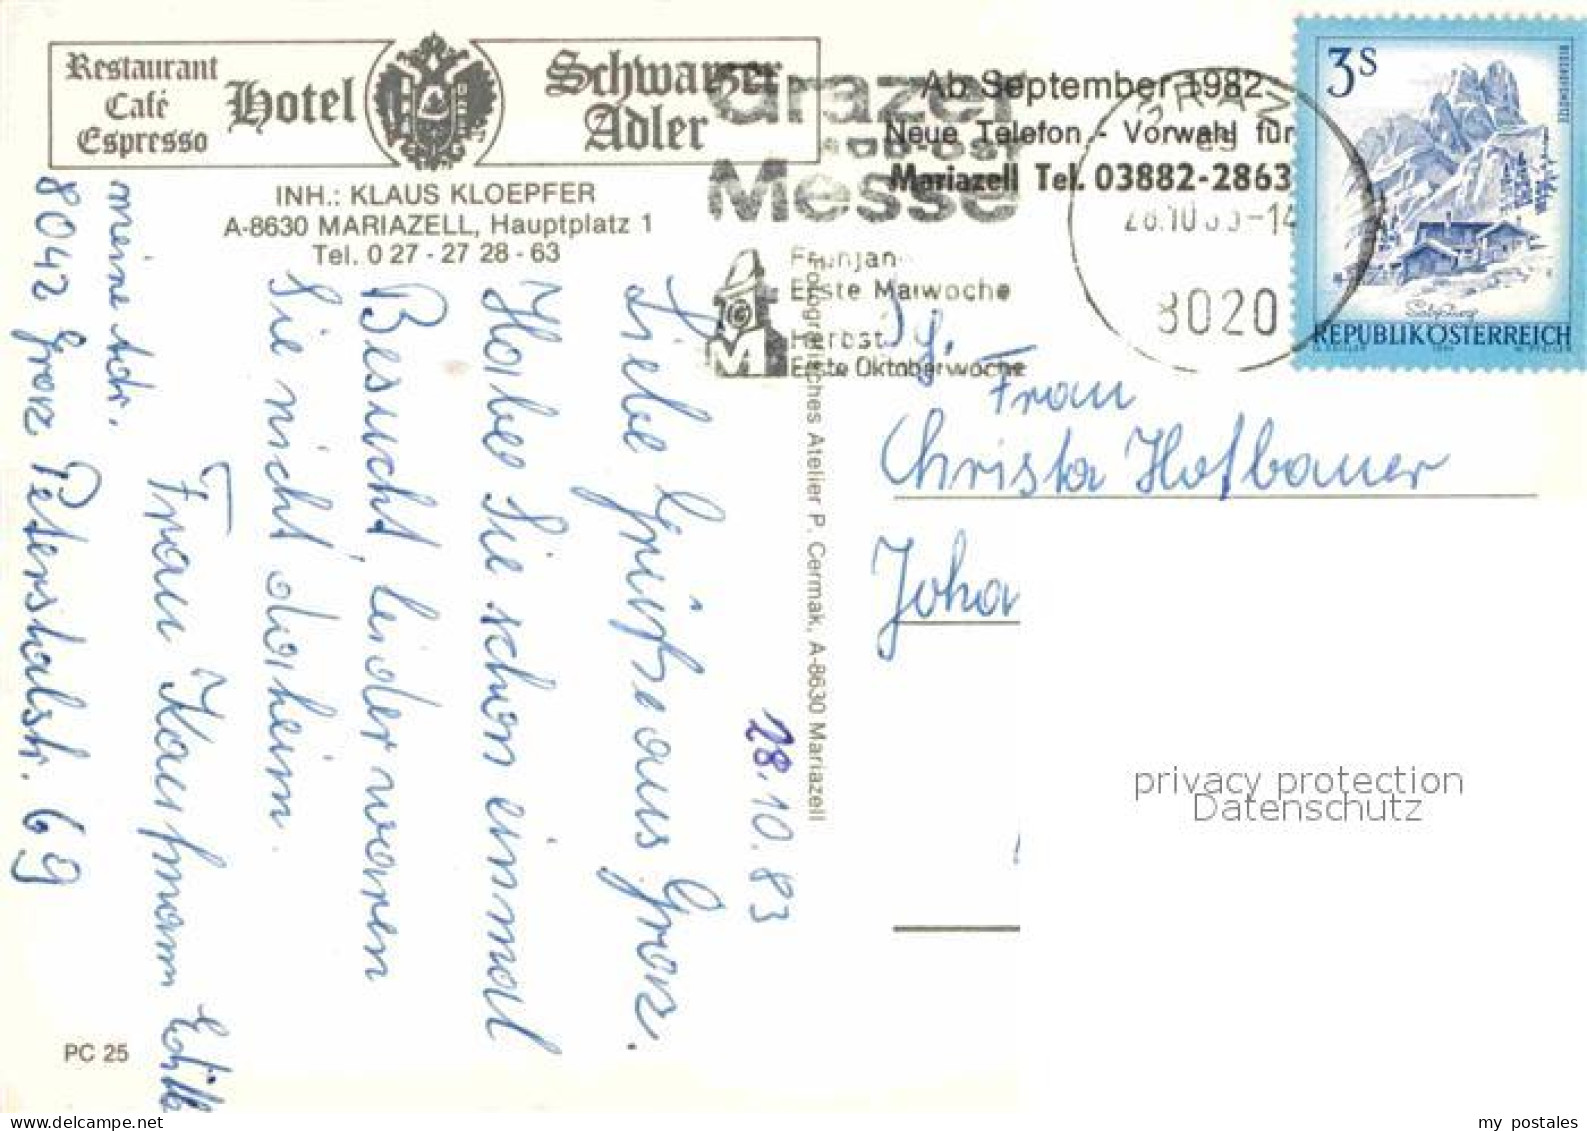 Restaurant
Café
Espresso
Hotel
Schwarzer
Adler
INH.: KLAUS KLOEPFER
A-8630 MARIAZELL, Hauptplatz 1
Tel. 0 27 - 27 28 - 63
Ab September 1982
Neue Telefon - Vorwahl für
Mariazell Tel. 03882-2863
Grazer
Südost
Messe
Frühjahr
Erste Maiwoche
Herbst
Erste Oktoberwoche
GRAZ
28.10.83-14
8020
3S
BISCHOFSMÜTZE
Salzburg
REPUBLIK ÖSTERREICH
28.10.83
Liebe Grüße aus Graz.
Habe Sie schon einmal
Besucht, leider waren
Sie nicht daheim.
Frau Kaufmann Edith
meine Adr.
8042 Graz Petersbergstr. 69
Fotografisches Atelier P. Cermak, A-8630 Mariazell
Frau
Christa Hofbauer
Joha
privacy protection
Datenschutz
PC 25
delcampe.net
my_postales